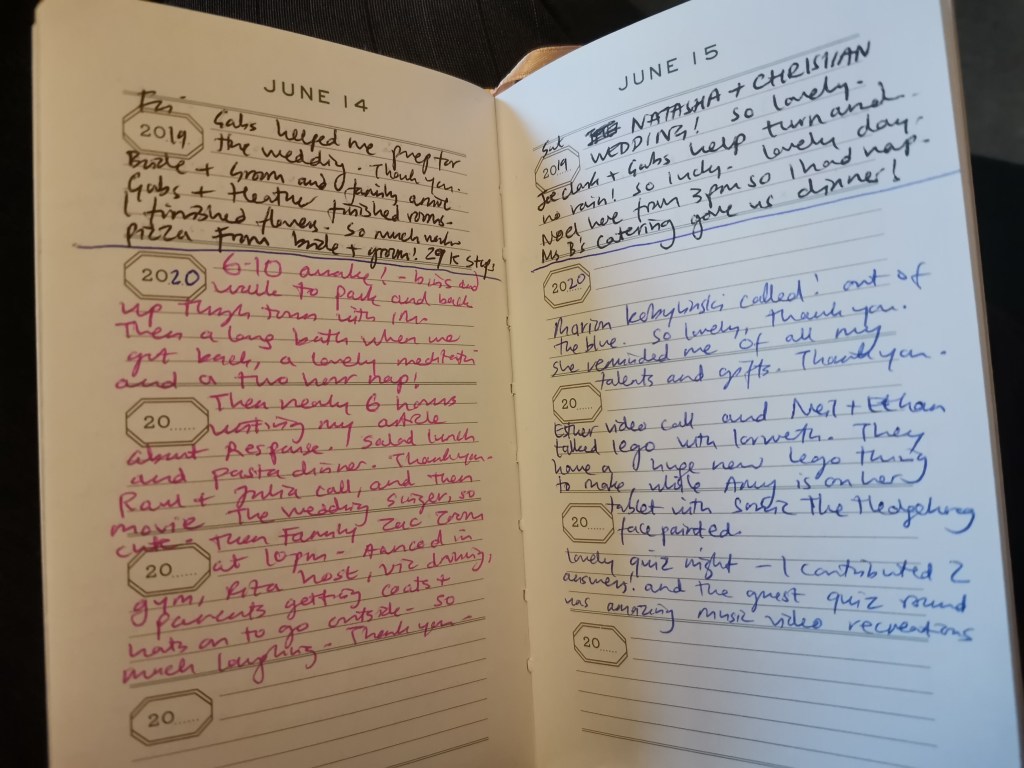 JUNE 14
Fri
2019
Gabs helped me prep for
the wedding. Thank you.
Bride + Groom and family arrive
Gabs + Heather finished rooms.
I finished flowers. So much
pizza from bride + groom! 29K steps
2020
6-10 awake! - bins and
walk to park and back
up through town with
Then a long bath when we
got back, a lovely meditation
and a two hour nap!
20......
Then nearly 6 hours
writing my article
about Response. Salad lunch
and pasta dinner. Thank you.
Raul + Julia call, and then
movie The wedding singer, so
cute. Then Family Zac Zoom
20......
at 10pm - danced in
gym, Rita host, viz driving,
parents getting coats +
hats on to go outside - so
much laughing - Thank you -
20......
JUNE 15
Sat
NATASHA + CHRISTIAN
2019
WEDDING! So lovely.
Joe Clark + Gabs help turnaround.
no rain! So lucky. Lovely day.
Noel here from 3pm so I had nap.
Ms B's Catering gave us dinner!
2020
Marion Kobylinski called! out of
the blue. So lovely, thank you.
She reminded me of all my
talents and gifts. Thank you.
20......
Esther video call and Neil + Ethan
talked lego with Iorweth. They
have a huge new Lego thing
to make, while Amy is on her
tablet with Sonic The Hedgehog
20......
face painted.
lovely quiz night - I contributed 2
answers! and the guest quiz round
was amazing music video recreations
20......